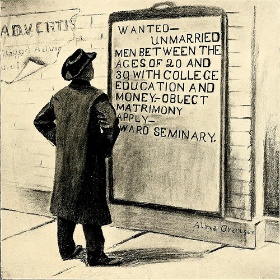 ADVERTIS
Good Advice
WANTED—
UNMARRIED
MEN BETWEEN THE
AGES OF 20 AND
39 WITH COLLEGE
EDUCATION AND
MONEY—OBJECT
MATRIMONY
APPLY—
WARD SEMINARY.